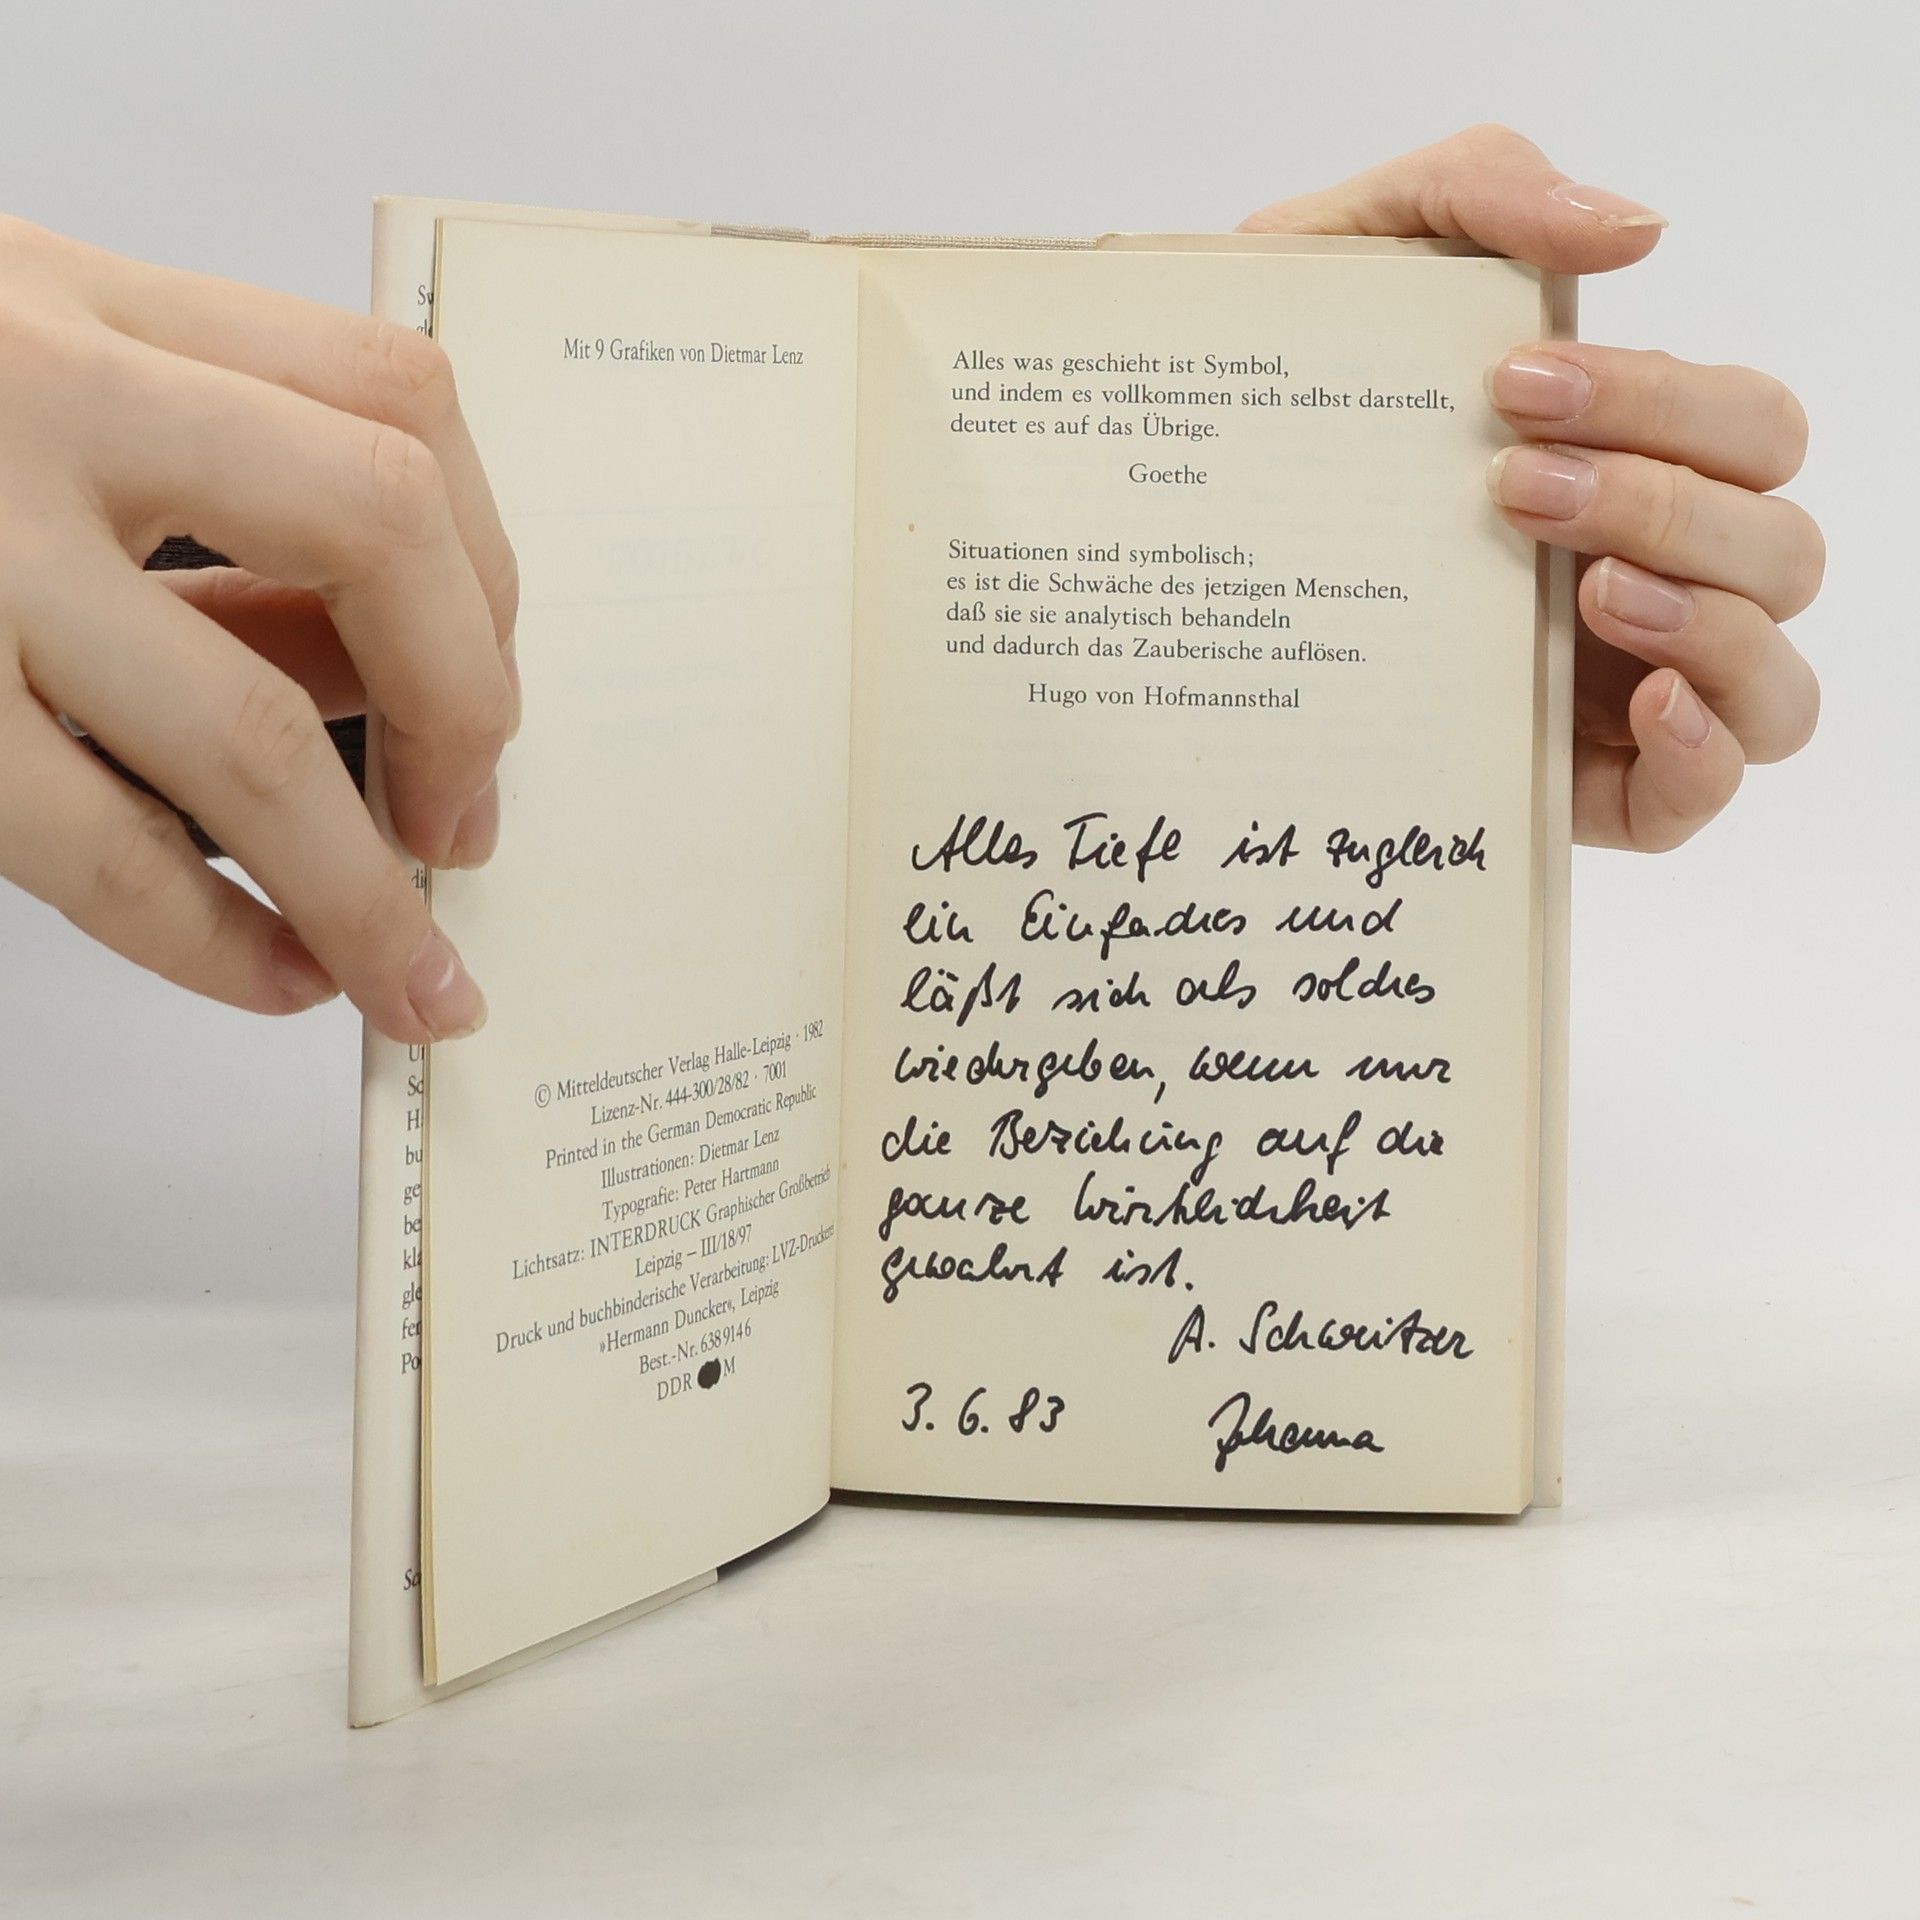 Mit 9 Grafiken von Dietmar Lenz
© Mitteldeutscher Verlag Halle-Leipzig · 1982
Lizenz-Nr. 444-300/28/82 · 7001
Printed in the German Democratic Republic
Illustrationen: Dietmar Lenz
Typografie: Peter Hartmann
Lichtsatz: INTERDRUCK Graphischer Großbetrieb
Leipzig – III/18/97
Druck und buchbinderische Verarbeitung: LVZ-Druckerei
»Hermann Duncker«, Leipzig
Best.-Nr. 638 914 6
DDR M
Alles was geschieht ist Symbol,
und indem es vollkommen sich selbst darstellt,
deutet es auf das Übrige.
Goethe
Situationen sind symbolisch;
es ist die Schwäche des jetzigen Menschen,
daß sie sie analytisch behandeln
und dadurch das Zauberische auflösen.
Hugo von Hofmannsthal
Alles Tiefe ist zugleich
ein Einfaches und
läßt sich als solches
wiedergeben, wenn nur
die Beziehung auf die
ganze Wirklichkeit
gewahrt ist.
A. Schweitzer
3. 6. 83 Johanna